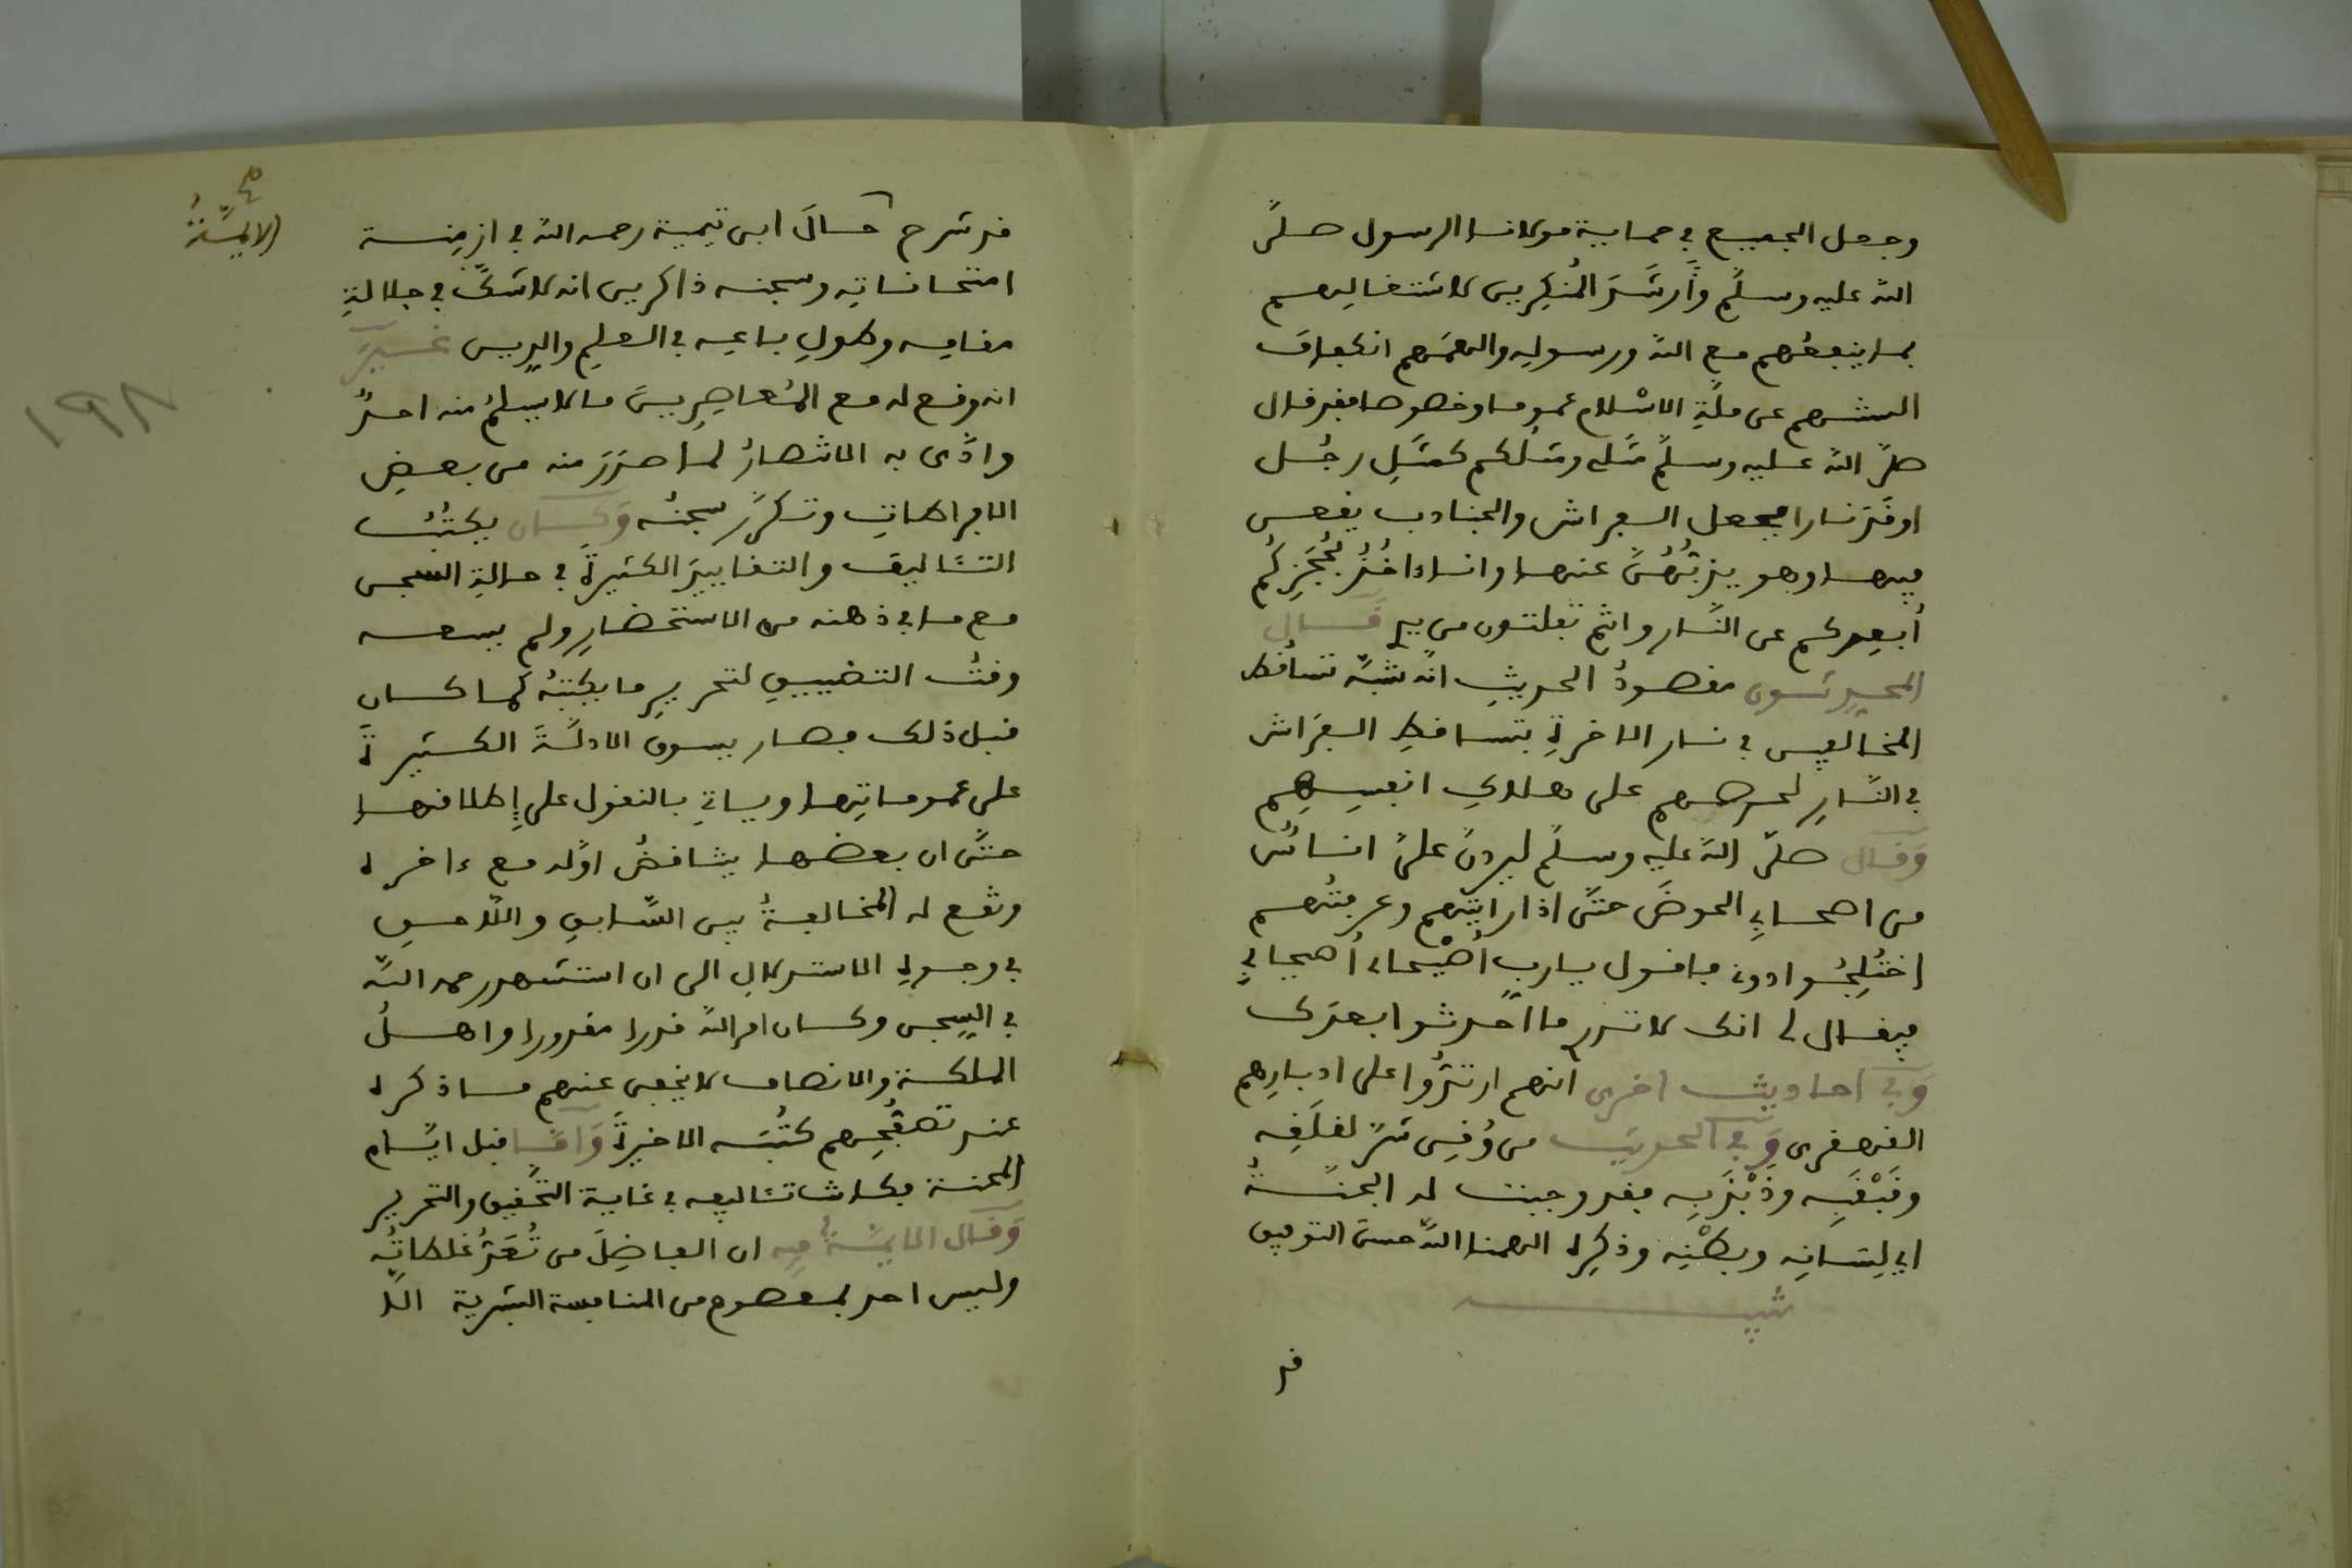 وجعل الجميع في حماية مولانا الرسول صلى
الله عليه وسلم وأرشد المنكرين لاشتغالهم
بما ينفعهم مع الله ورسوله والهمهم انكفاف
السنتهم عن ملة الاسلام عموما وخصوصا فقد قال
صلى الله عليه وسلم مثلي ومثلكم كمثل رجل
اوقد نارا فجعل الفراش والجنادب يقعن
فيها وهو يذبهن عنها وانا ءاخذ بحجزكم
أبعدكم عن النار وانتم تفلتون من يدي قال
المحدثون مقصود الحديث انه شبه تساقط
المخالفين في نار الاخرة بتساقط الفراش
في النار لحرصهم على هلاك انفسهم
وقال صلى الله عليه وسلم ليردن علي اناس
من اصحابي الحوض حتى اذا رايتهم وعرفتهم
اختلجوا دوني فاقول يا رب أصيحابي أصيحابي
فيقال لي انك لا تدري ما احدثوا بعدك
وفي احاديث اخرى انهم ارتدوا على ادبارهم
القهقرى وفي الحديث من وقي شر لقلقه
وقبقبه وذبذبه فقد وجبت له الجنة
اي لسانه وبطنه وذكره الهمنا الله حسن التوفيق
تنبيه
قد
قد شرح حال ابن تيمية رحمه الله في ازمنة
الائمة صح
امتحاناته وسجنه ذاكرين انه لا شك في جلالة
مقامه وطول باعه في العلم والدين غير
انه وقع له مع المعاصرين ما لا يسلم منه احد
وادى به الاشتهار لما صدر منه من بعض
الافراطات وتكرر سجنه وكان يكتب
التئاليف والتقاييد الكثيرة في حالة السجن
مع ما في ذهنه من الاستحضار ولم يسعه
وقت التضييق لتحرير ما يكتبه كما كان
قبل ذلك فصار يسوق الادلة الكثيرة
على عموماتها وياتي بالنقول على إطلاقها
حتى ان بعضها يناقض اوله مع ءاخره
وتقع له المخالفة بين السابق واللاحق
في وجوه الاستدلال الى ان استشهد رحمه الله
في السجن وكان امر الله قدرا مقدورا واهل
الملكة والانصاف لا يخفى عنهم ما ذكره
عند تصفحهم كتبه الاخيرة واما قبل ايام
المحنة فكانت تئاليفه في غاية التحقيق والتحرير
وقال الايمة فيه ان الفاضل من تعد غلطاته
وليس احد بمعصوم من المنافسة البشرية الا
١٩٨